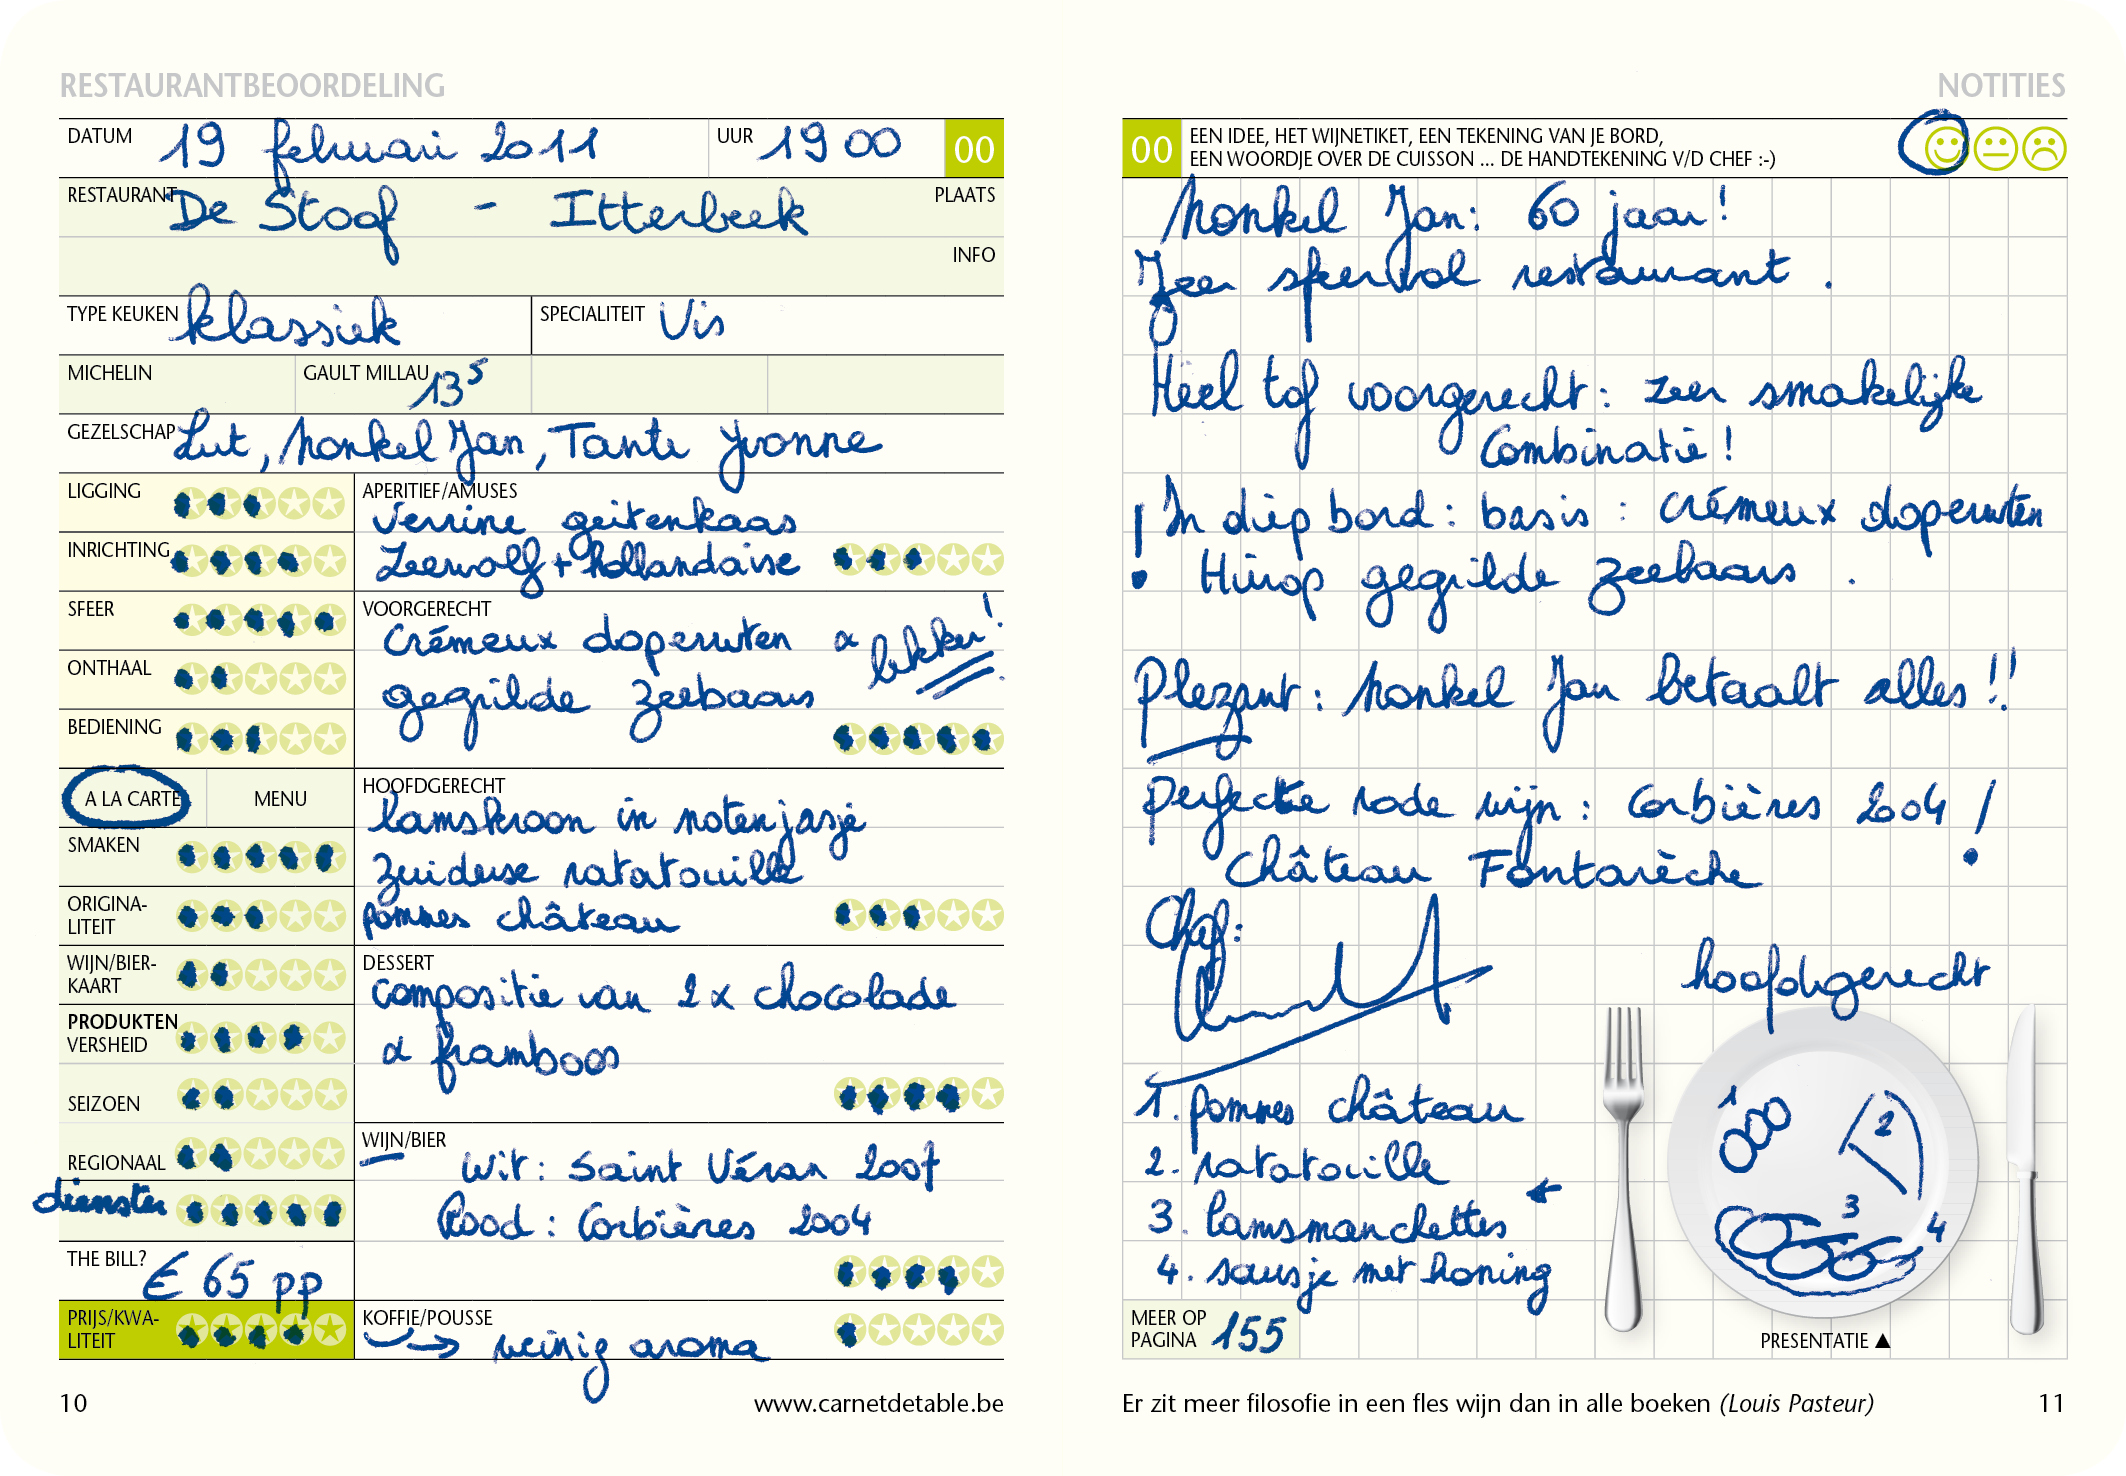 RESTAURANTBEOORDELING
DATUM 19 februari 2011 UUR 19 00 00
RESTAURANT De Stoof - Itterbeek PLAATS
INFO
TYPE KEUKEN klassiek SPECIALITEIT Vis
MICHELIN GAULT MILLAU 13 5
GEZELSCHAP Lut, Nonkel Jan, Tante Yvonne
LIGGING
INRICHTING
SFEER
ONTHAAL
BEDIENING
A LA CARTE MENU
SMAKEN
ORIGINA-
LITEIT
WIJN/BIER-
KAART
PRODUKTEN
VERSHEID
SEIZOEN
REGIONAAL
diensten
THE BILL? € 65 pp
PRIJS/KWA-
LITEIT
APERITIEF/AMUSES
Verrine geitenkaas
Zeewolf + hollandaise
VOORGERECHT
Crémeux doperwten &
gegrilde zeebaars
lekker!
HOOFDGERECHT
lamskroon in notenjasje
zuiderse ratatouille
pommes château
DESSERT
compositie van 2 x chocolade
& framboos
WIJN/BIER
Wit: Saint Véran 2007
Rood: Corbières 2004
KOFFIE/POUSSE
→ weinig aroma
10 www.carnetdetable.be
NOTITIES
00 EEN IDEE, HET WIJNETIKET, EEN TEKENING VAN JE BORD,
EEN WOORDJE OVER DE CUISSON ... DE HANDTEKENING V/D CHEF :-)
Nonkel Jan: 60 jaar!
Zeer sfeervol restaurant.
Heel tof voorgerecht: zeer smakelijke
Combinatie!
! In diep bord: basis: crémeux doperwten
Hierop gegrilde zeebaars.
Plezant: Nonkel Jan betaalt alles!!
Perfecte rode wijn: Corbières 2004!
Château Fontarèche
Chef:
hoofdgerecht
1. pommes château
2. ratatouille
3. lamsmanchettes
4. sausje met honing
1
2
3
4
MEER OP
PAGINA 155
PRESENTATIE ▲
Er zit meer filosofie in een fles wijn dan in alle boeken (Louis Pasteur) 11